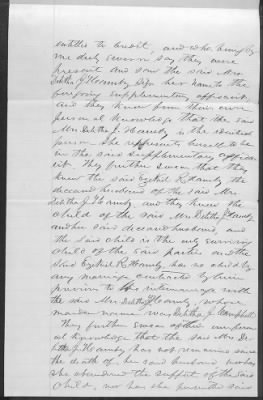 entitled to credit, and who being by
me duly sworn say they were
present and saw the said Mrs
Delitha J Hamby sign her name to the
foregoing supplementary affidavit
and they know from their own
personal knowledge that the said
Mrs Delitha J. Hamby is the identical
person she represents herself to be
in the said supplementary affidav
it. They further swear that they
knew the said Ezekiel R Hamby the
deceased husband of the said Mrs
Delitha J. Hamby, and they knew the
child of the said Mrs Delitha J Hamby
and her said deceased husband, and
the said child is the only surviving
child of the said parties and the
said Ezekiel R. Hamby has no child by
any marriage contracted by him
previous to his intermarriage with
the said Mrs Delitha J Hamby, whose
maiden name was Delitha J. Campbell
They further swear of their own person
al knowledge that the said Mrs De
litha J. Hamby has not remarried since
the death of her said husband nor has
she abandoned the support of the said
child, nor has she permitted said